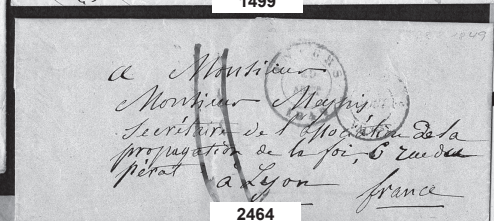 1499
1849
a Monsieur
Monsieur Meynis
Secrétaire de l'association de la
propagation de la foi, 6 rue du
pérat a Lyon france
2464